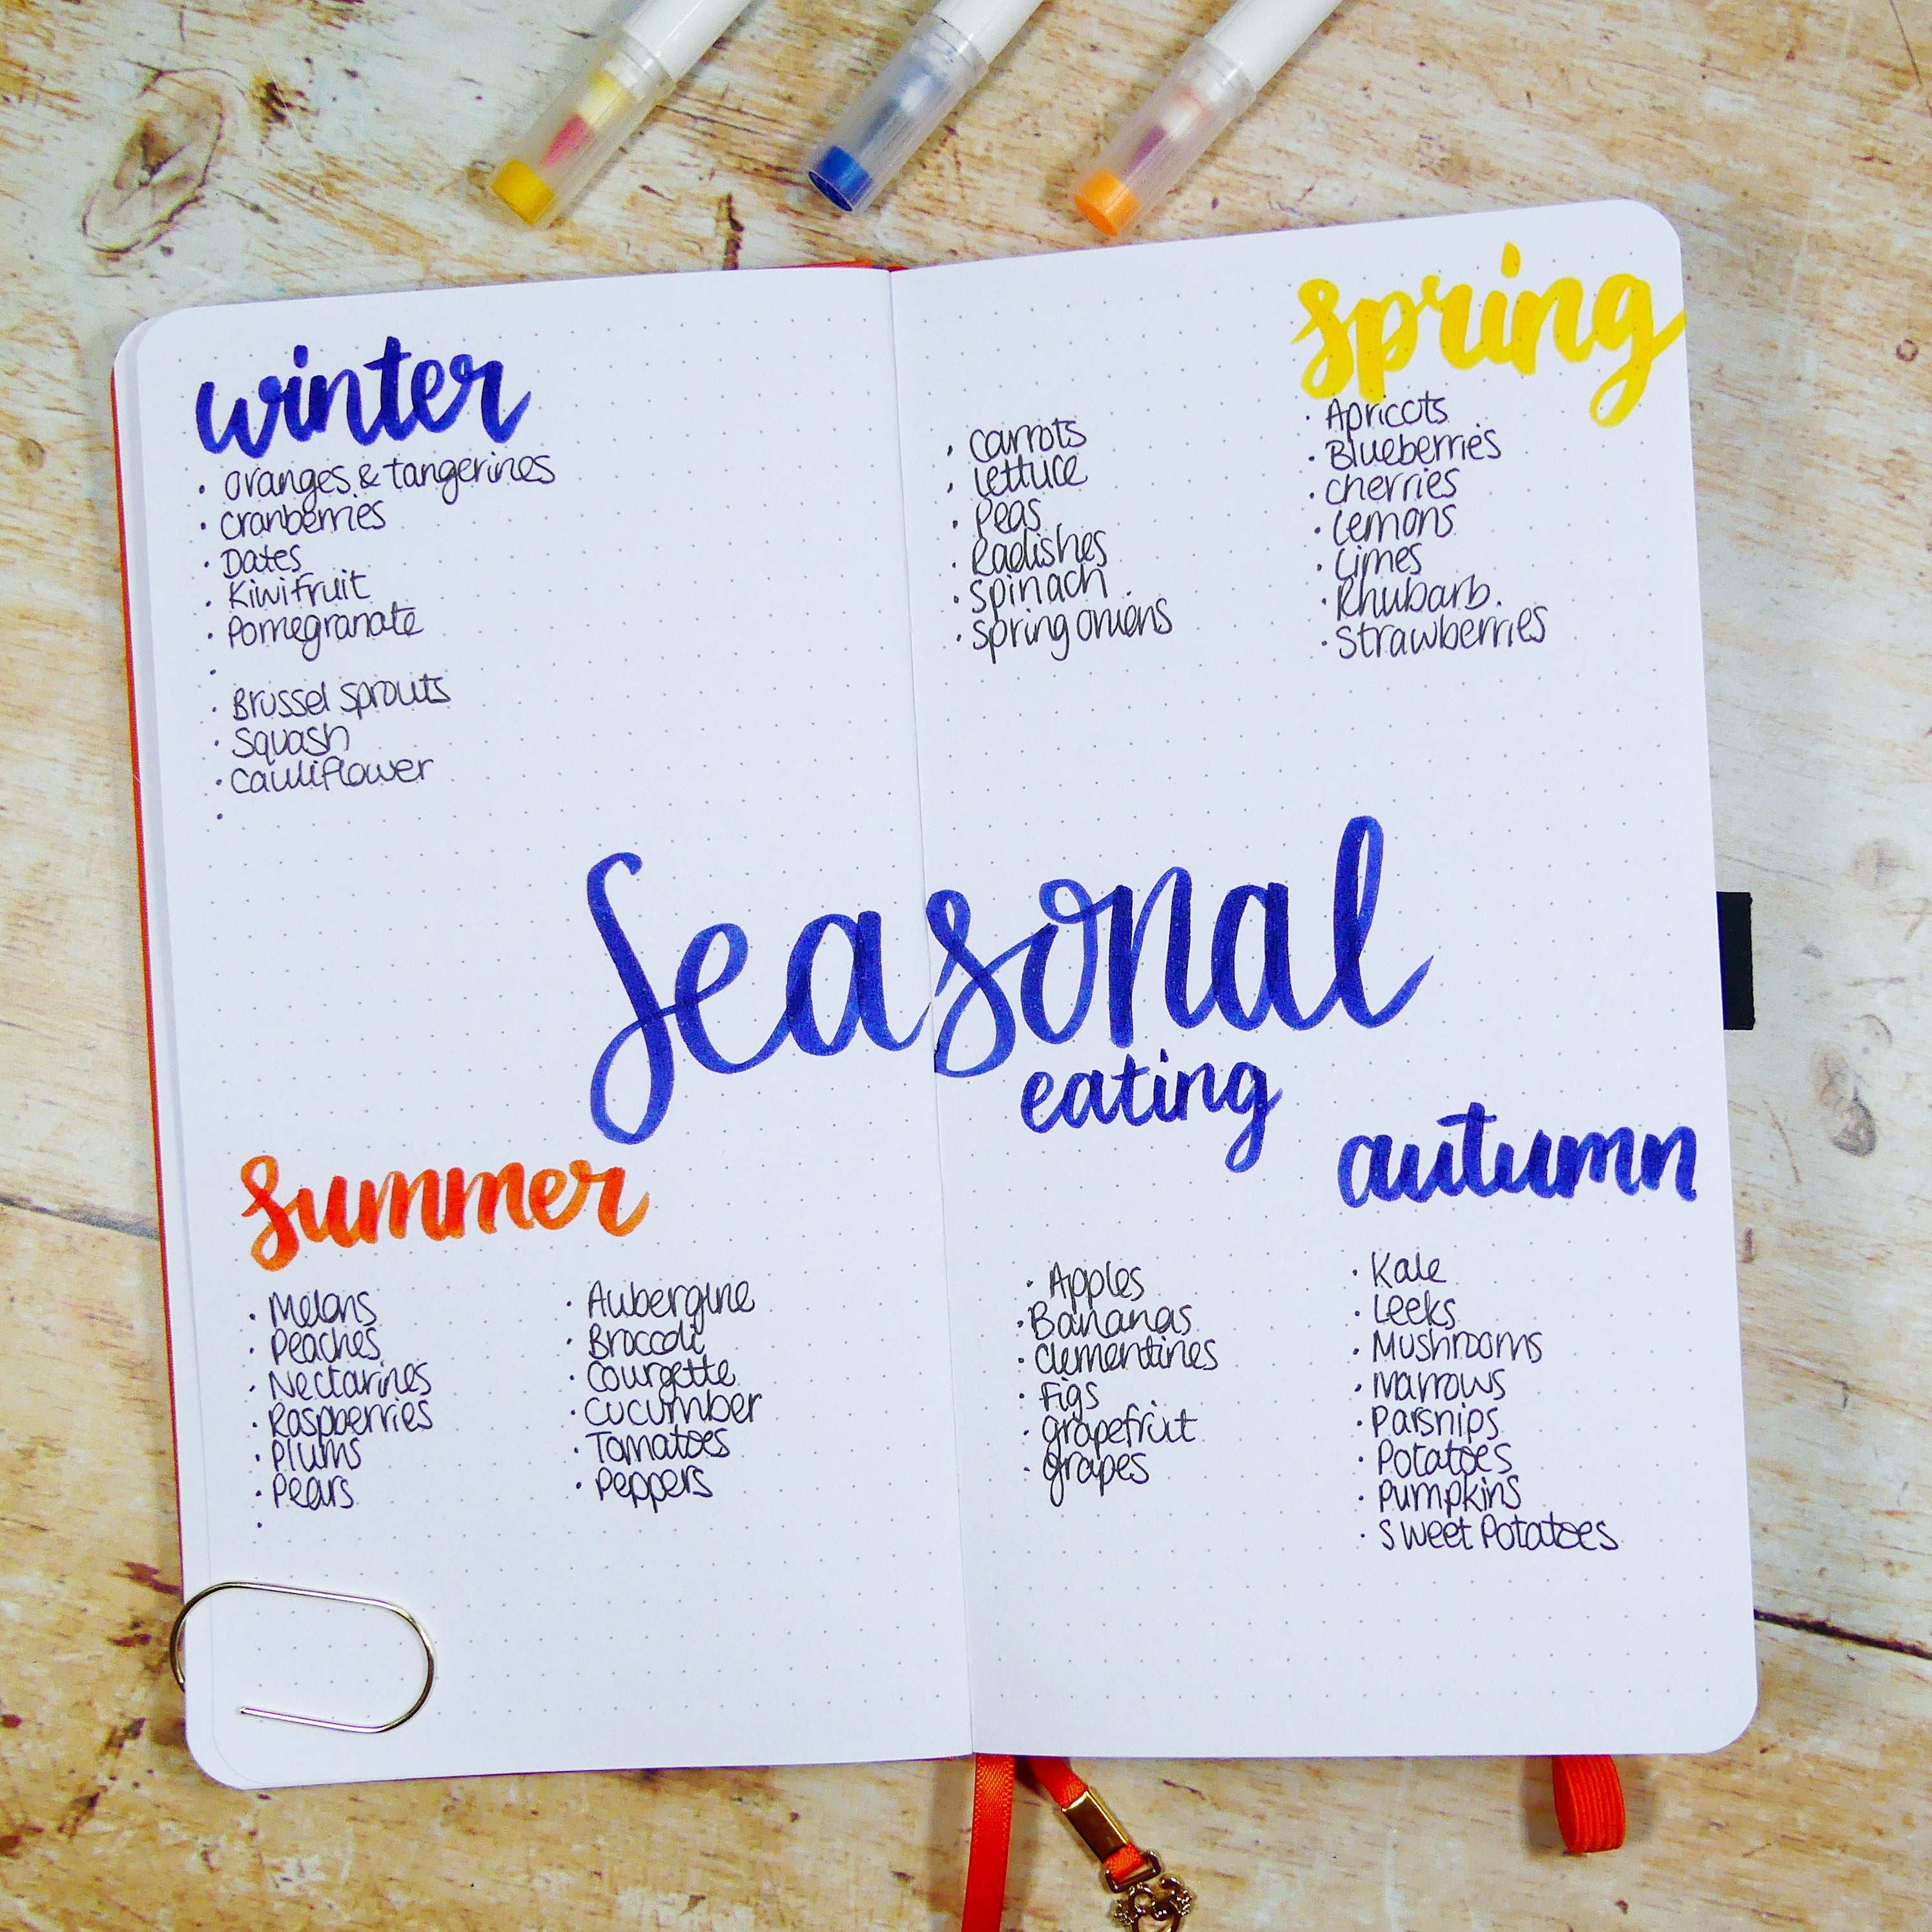 winter
· Oranges & tangerines
· Cranberries
· Dates
· Kiwifruit
· Pomegranate
·
· Brussel sprouts
· Squash
· Cauliflower
·
Spring
· Carrots
· Lettuce
· Peas
· Radishes
· Spinach
· Spring onions
· Apricots
· Blueberries
· Cherries
· Lemons
· Limes
· Rhubarb
· Strawberries
Seasonal
eating
Summer
· Melons
· Peaches
· Nectarines
· Raspberries
· Plums
· Pears
·
· Aubergine
· Broccoli
· Courgette
· Cucumber
· Tomatoes
· Peppers
autumn
· Apples
· Bananas
· Clementines
· Figs
· grapefruit
· grapes
· Kale
· Leeks
· Mushrooms
· Marrows
· Parsnips
· Potatoes
· Pumpkins
· Sweet Potatoes